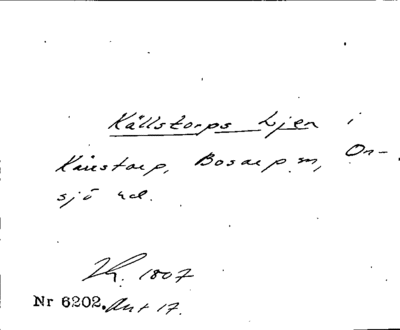 Källstorps Ljen i
Källstorp, Bosarp sn, On-
sjö hd.
Kh. 1807
Nr 6202. Ant 17.